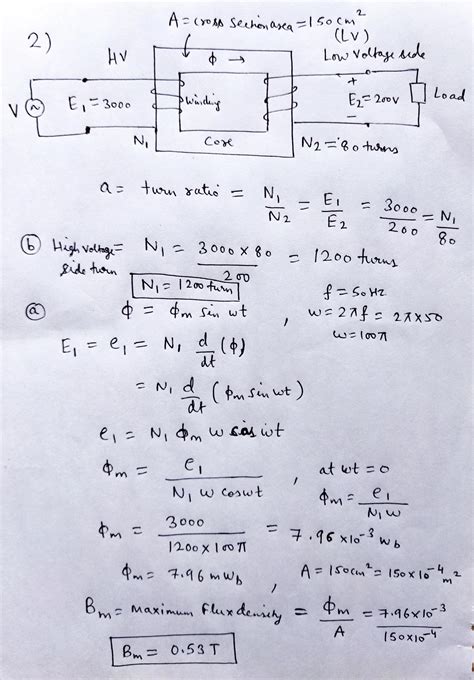 2)
A = cross section area = 150 cm²
(LV)
HV
Low voltage side
ϕ →
V
E₁ = 3000
Winding
+
E₂ = 200V
−
Load
N₁
Core
N₂ = 80 turns
a = turn ratio = N₁/N₂ = E₁/E₂ = 3000/200 = N₁/80
(b) High voltage side turn = N₁ = 3000 × 80 / 200 = 1200 turns
N₁ = 1200 turn
f = 50 Hz
(a) ϕ = ϕm sin wt , w = 2πf = 2π×50
w = 100π
E₁ = e₁ = N₁ d/dt (ϕ)
= N₁ d/dt (ϕm sin wt)
e₁ = N₁ ϕm w cos wt
ϕm = e₁ / N₁ w cos wt , at wt = 0
ϕm = e₁ / N₁ w
ϕm = 3000 / 1200 × 100π = 7.96 × 10⁻³ Wb
ϕm = 7.96 m Wb , A = 150 cm² = 150 × 10⁻⁴ m²
Bm = maximum flux density = ϕm / A = 7.96 × 10⁻³ / 150 × 10⁻⁴
Bm = 0.53 T